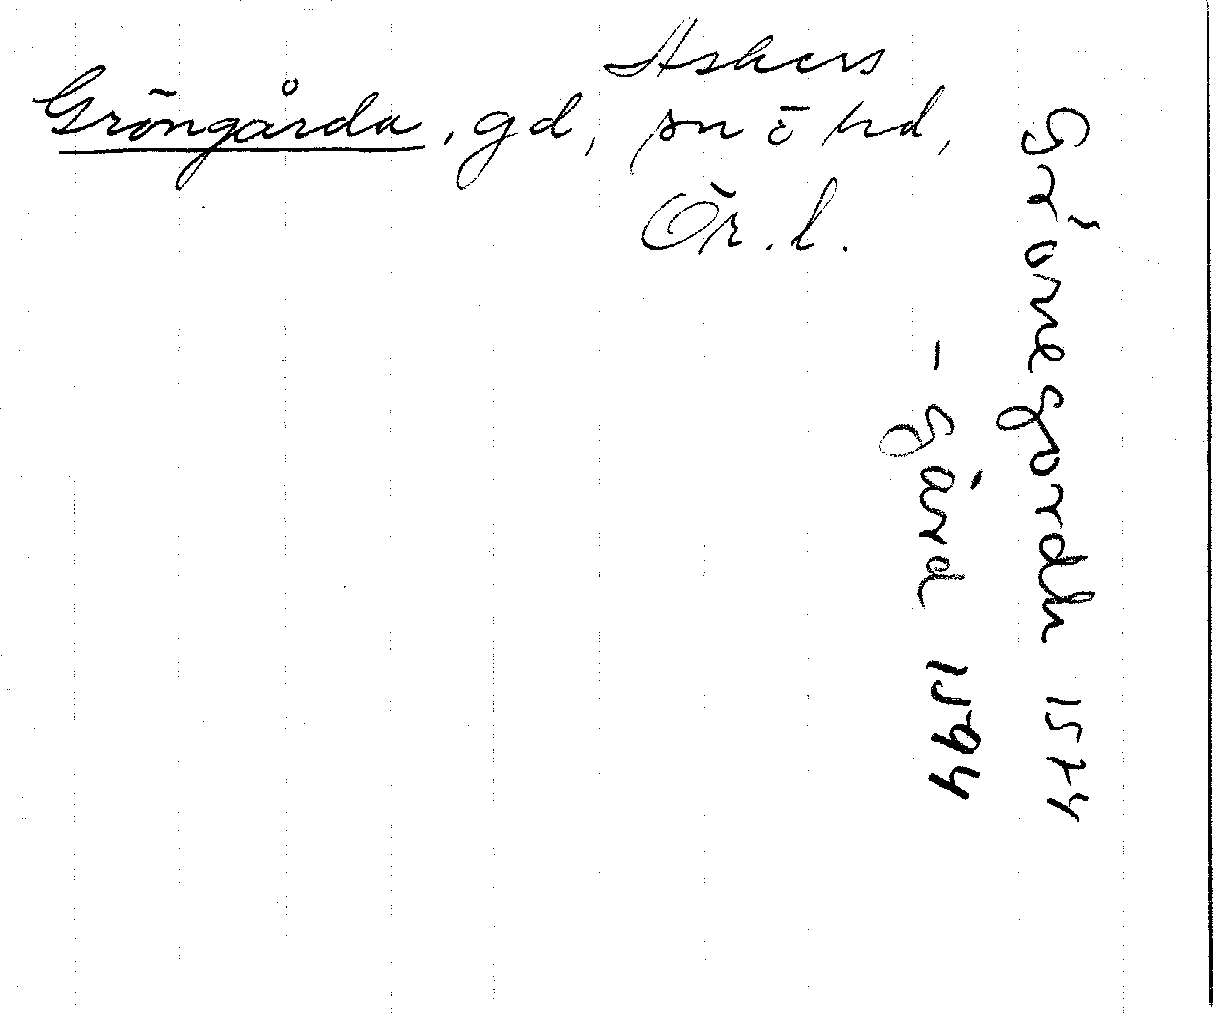 Askers
Gröngårda, gd, sn o hd,
Ör. l.
Grönnegordh 1574
- gård 1594